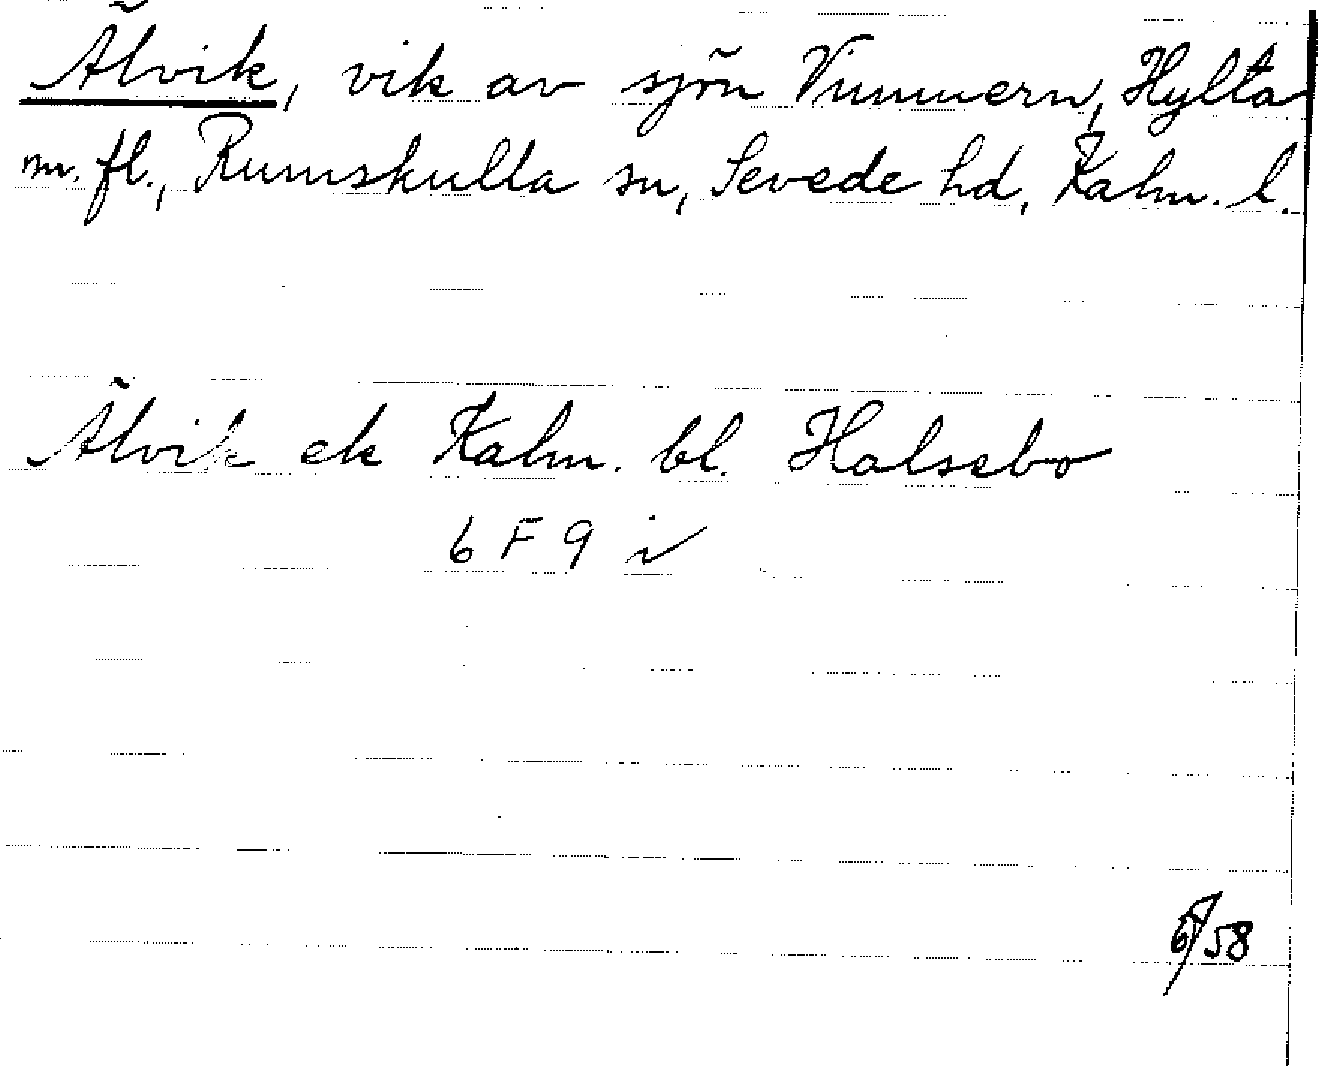 Älvik, vik av sjön Vimmern, Hylta
m. fl., Rumskulla sn, Sevede hd, Kalm. l.
Älvik ek Kalm. bl. Halsebo
6 F 9 i
6/58